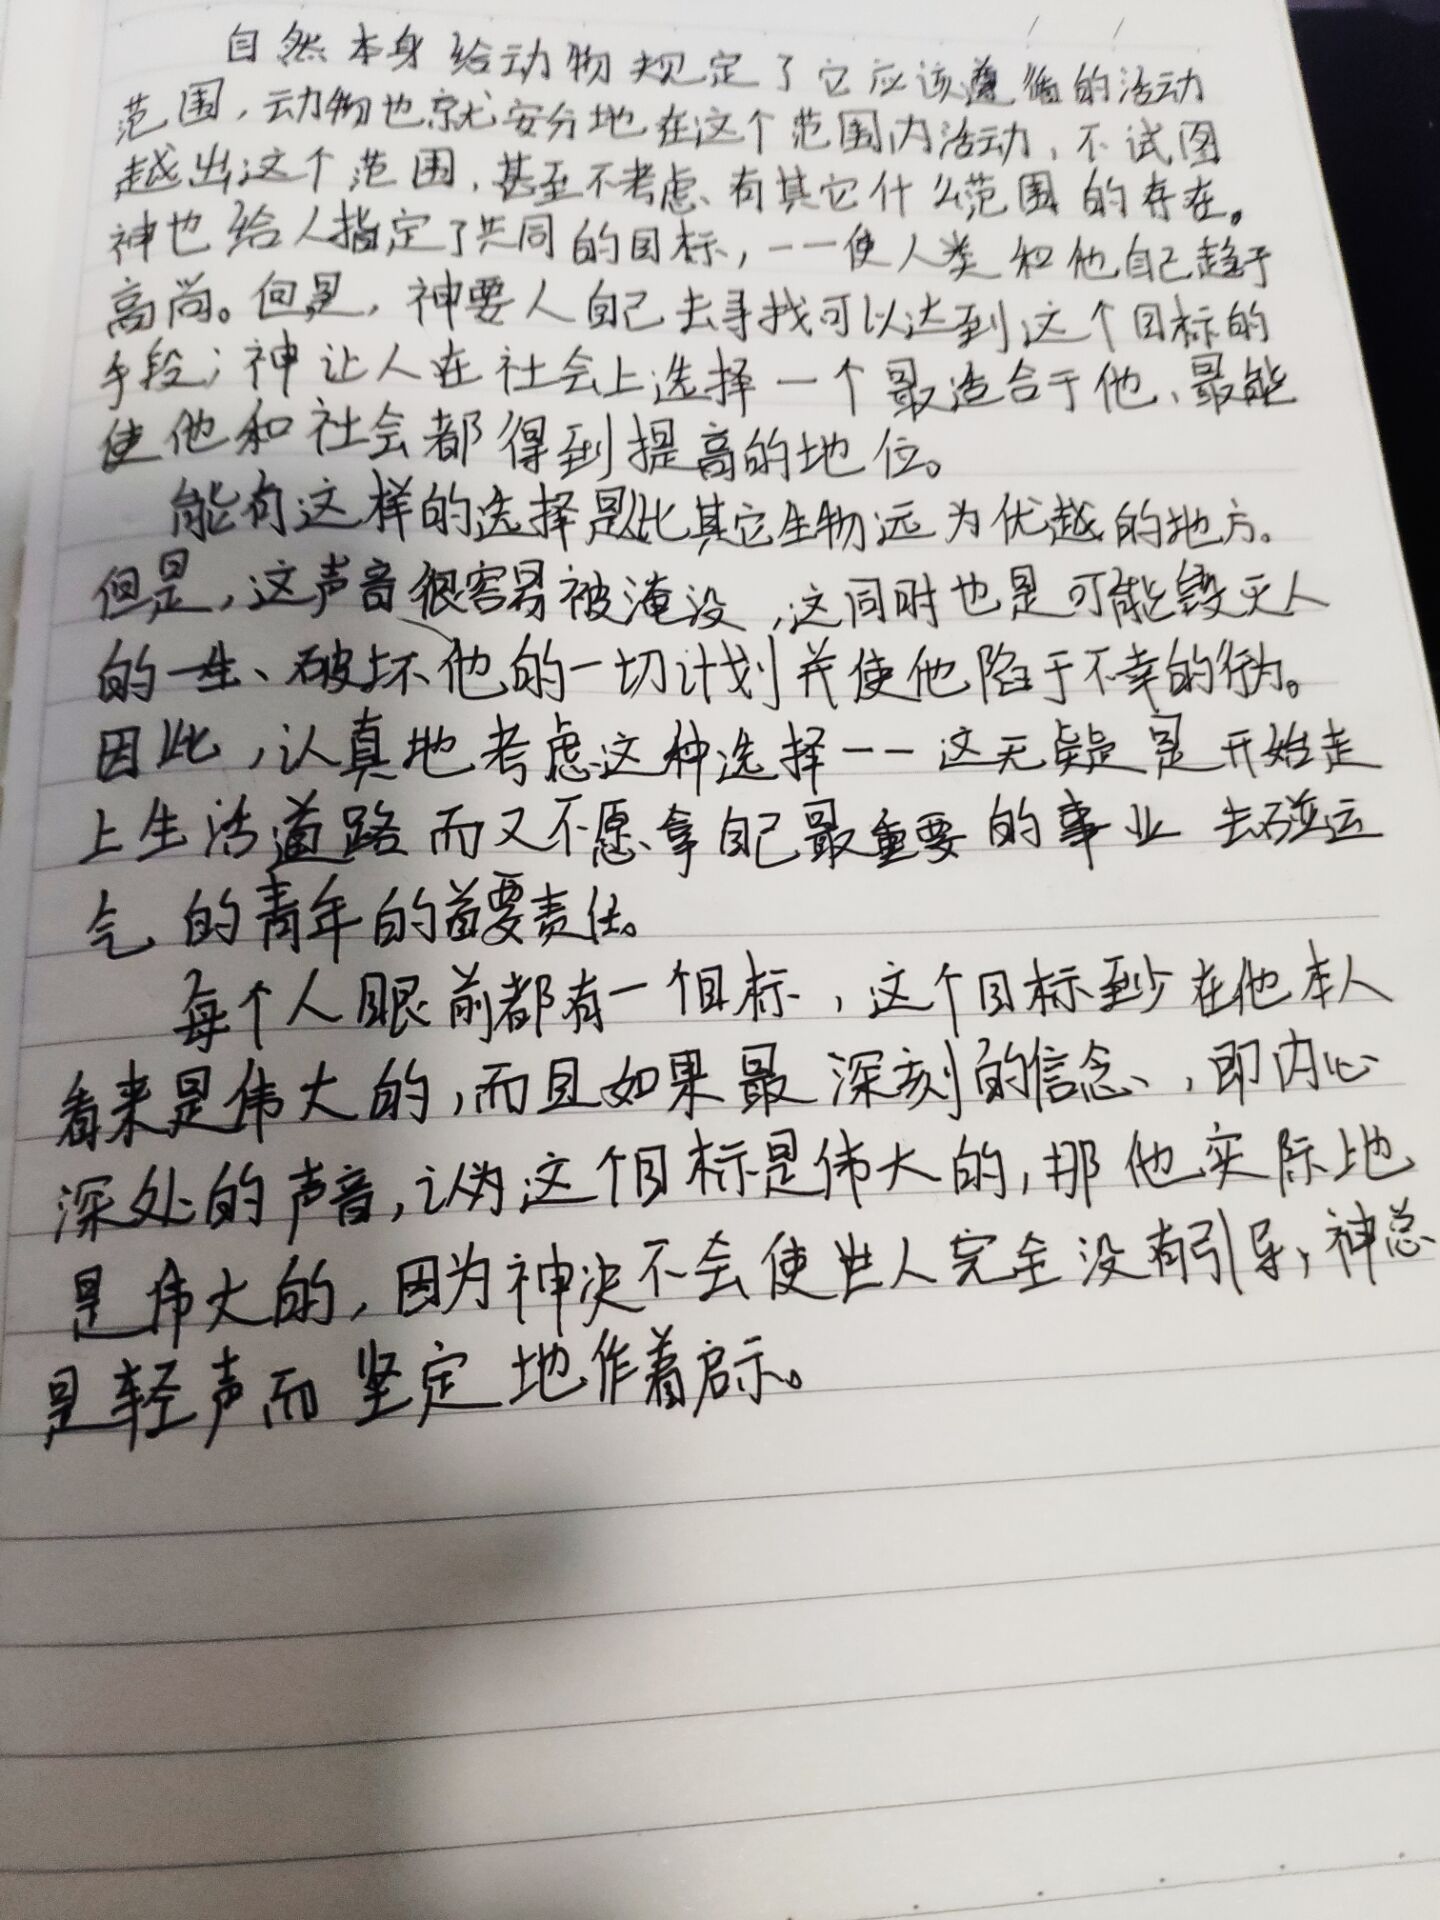 自然本身给动物规定了它应该遵循的活动
范围，动物也就安分地在这个范围内活动，不试图
越出这个范围，甚至不考虑有其它什么范围的存在。
神也给人指定了共同的目标，——使人类和他自己趋于
高尚。但是，神要人自己去寻找可以达到这个目标的
手段；神让人在社会上选择一个最适合于他、最能
使他和社会都得到提高的地位。
能有这样的选择是比其它生物远为优越的地方。
但是，这声音很容易被淹没，这同时也是可能毁灭人
的一生、破坏他的一切计划并使他陷于不幸的行为。
因此，认真地考虑这种选择——这无疑是开始走
上生活道路而又不愿拿自己最重要的事业去碰运
气的青年的首要责任。
每个人眼前都有一个目标，这个目标至少在他本人
看来是伟大的，而且如果最深刻的信念，即内心
深处的声音，认为这个目标是伟大的，那他实际地
是伟大的，因为神决不会使世人完全没有引导，神总
是轻声而坚定地作着启示。